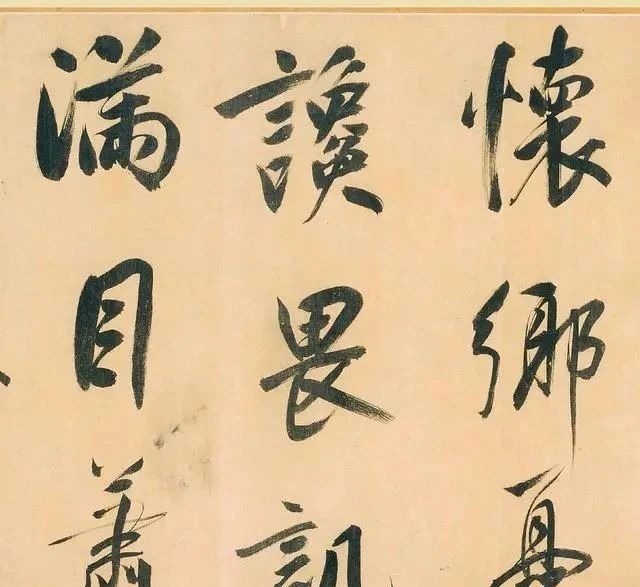 懷鄉憂
讒畏譏
滿目蕭